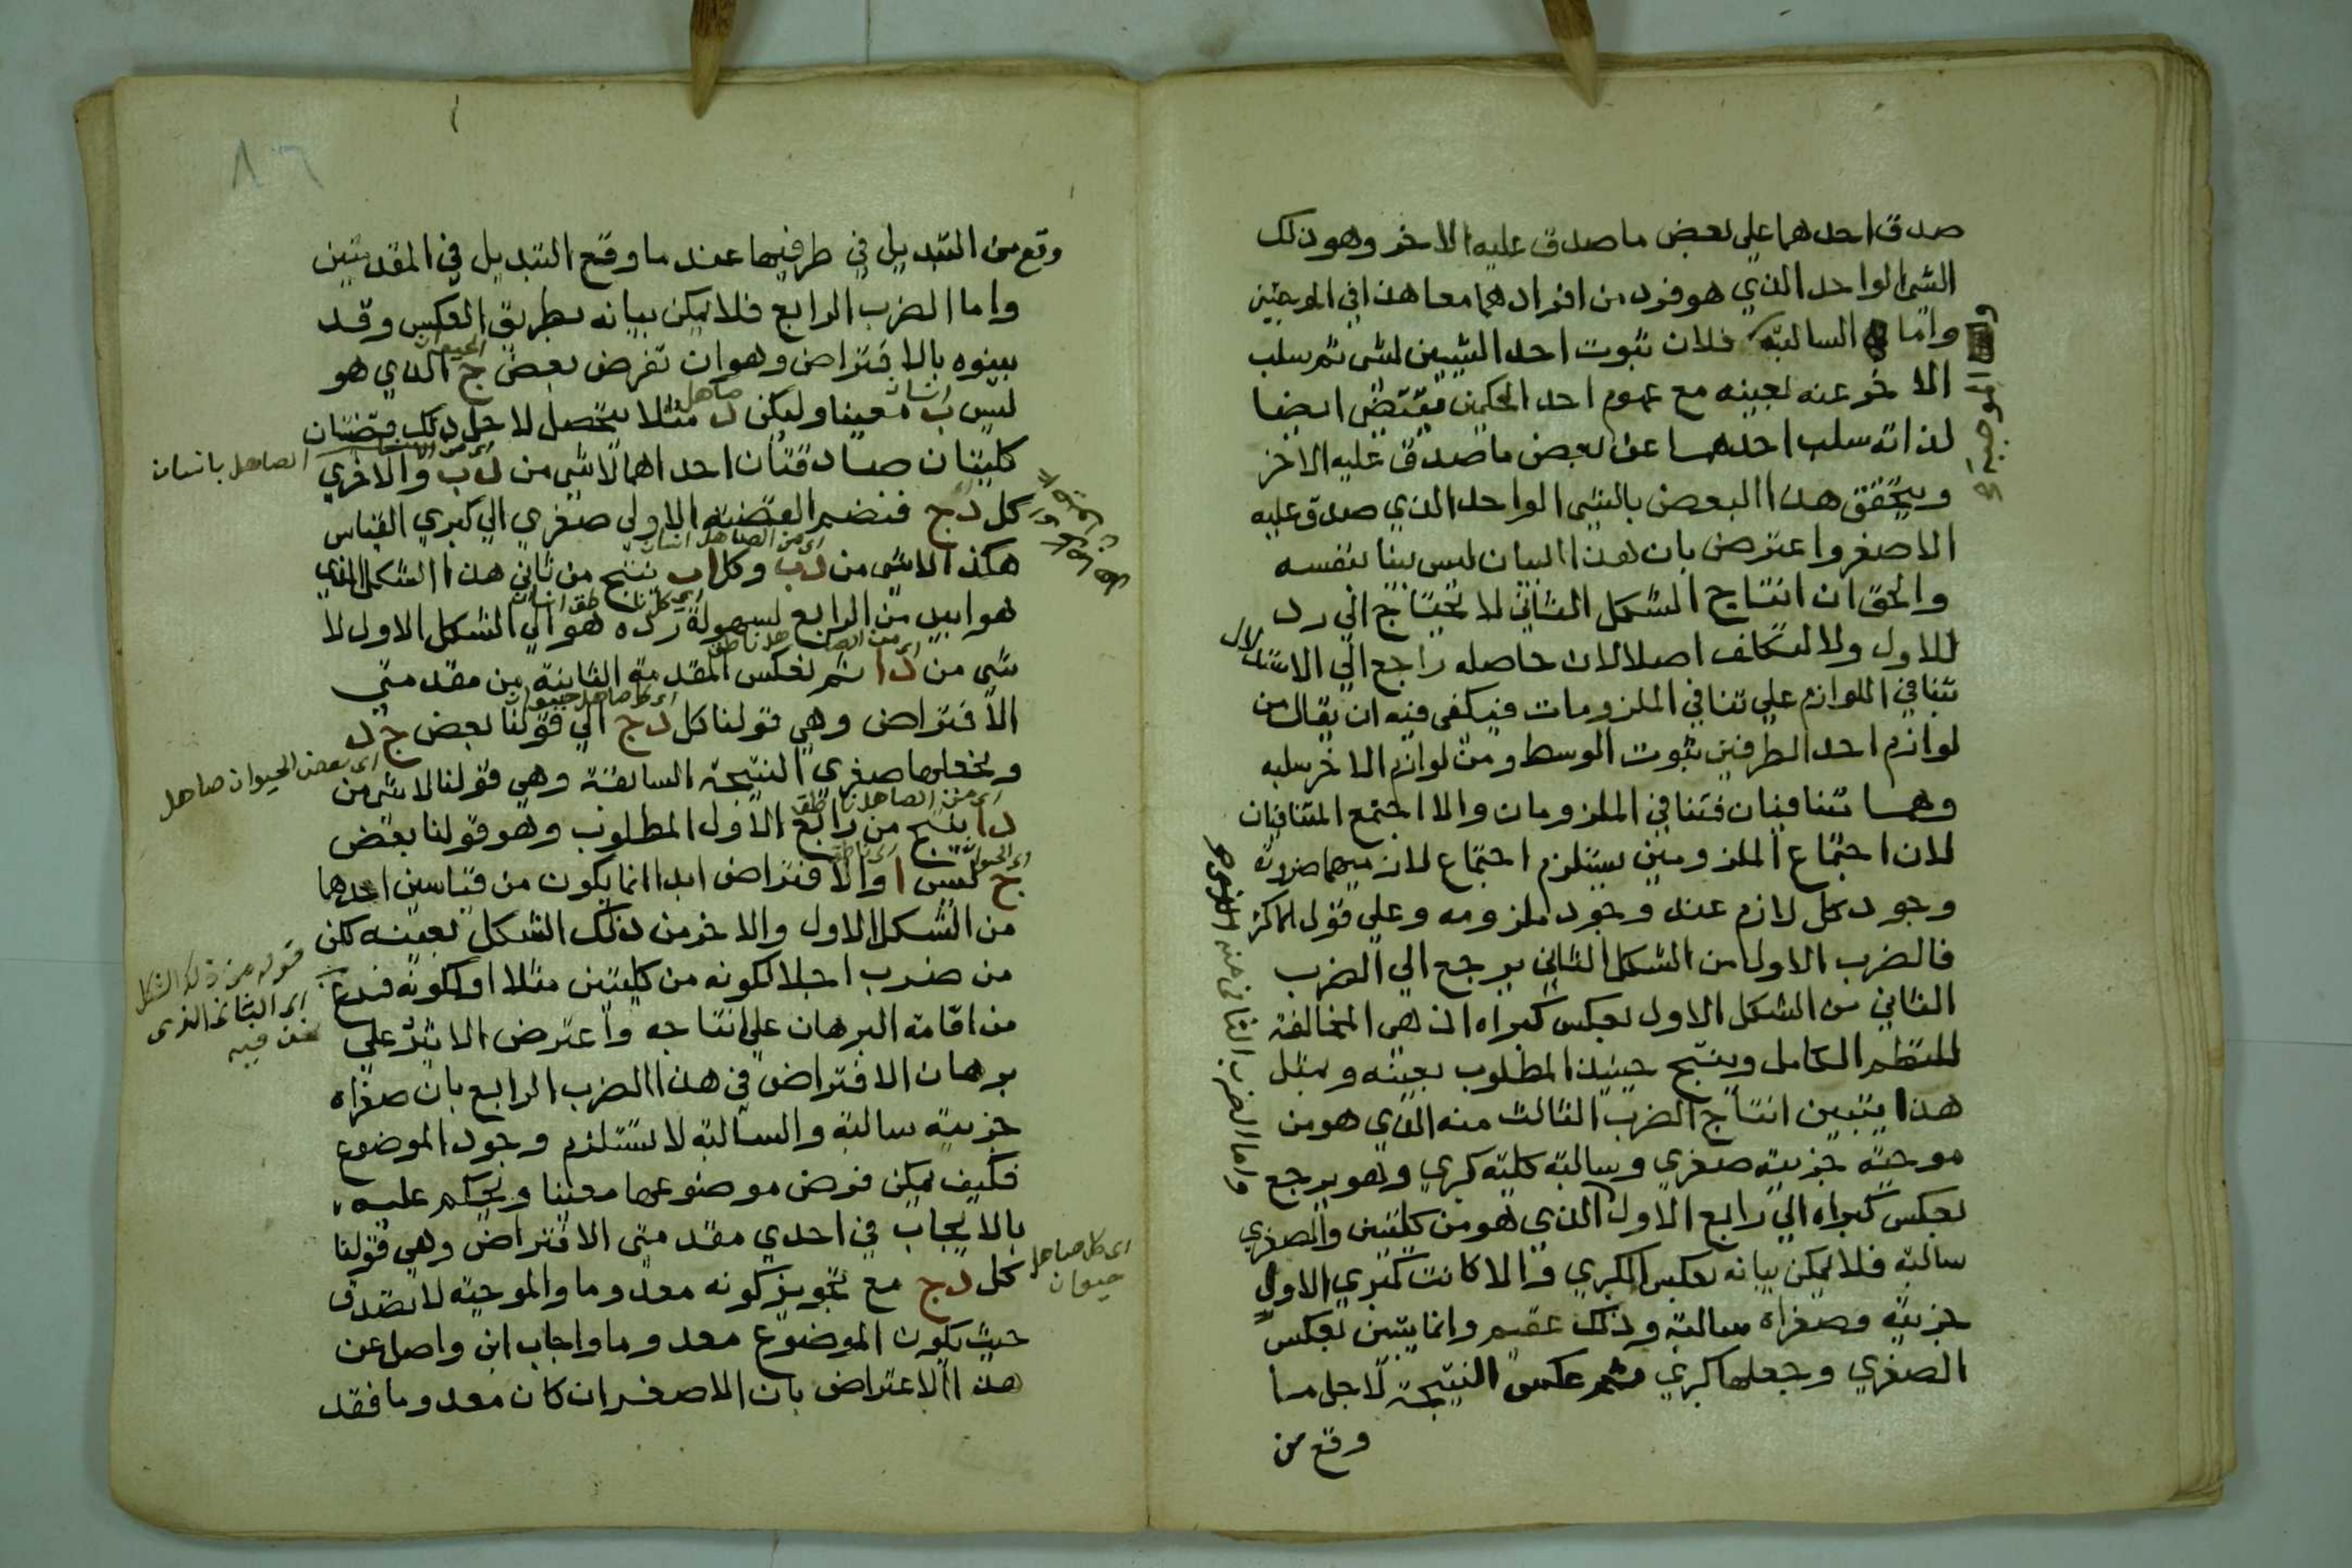 صدق احدهما علي بعض ما صدق عليه الاخر وهو ذلك
الشي الواحد الذي هو فرد من افرادهما معا هذا في الموجبتين
واما السالبة فلان ثبوت احد الشيين لشي ثم سلب
الاخر عنه بعينه مع عموم احد الحكمين مقتض ايضا
لذاته سلب احدهما عن بعض ما صدق عليه الاخر
ويتحقق هذا البعض بالشي الواحد الذي صدق عليه
الاصغر واعترض بان هذا البيان ليس بينا بنفسه
والحق ان انتاج الشكل الثاني لا يحتاج الي رد
للاول ولا لتكلف اصلا لان حاصله راجع الي الاستدلال
بتنافي اللوازم علي تنافي الملزومات فيكفي فيه ان يقال من
لوازم احد الطرفين ثبوت الوسط ومن لوازم الاخر سلبه
وهما متنافيان فتنافي الملزومان والا اجتمع المتنافيان
لان اجتماع الملزومين يستلزم اجتماع لازميهما ضرورة
وجود كل لازم عند وجود ملزومه وعلي قول الاكثر
فالضرب الاول من الشكل الثاني يرجع الي الضرب
الثاني من الشكل الاول بعكس كبراه اذ هي المخالفة
للنظم الكامل وينتج حينيذ المطلوب بعينه وبمثل
هذا يتبين انتاج الضرب الثالث منه الذي هو من
موجبة جزيية صغري وسالبة كلية كبري وهو يرجع
بعكس كبراه الي رابع الاول الذي هو من كليتين والصغري
سالبة فلا يمكن بيانه بعكس الكبري والا كانت كبري الاول
جزيية وصغراه سالبة وذلك عقيم وانما يتبين بعكس
الصغري وجعلها كبري ثم عكس النتيجة لاجل ما
وقع من
الموجبة
واما الضرب الثاني
وقع من التبديل في طرفيها عند ما وقع التبديل في المقدمتين
واما الضرب الرابع فلا يمكن بيانه بطريق العكس وقد
بينوه بالافتراض وهو ان تفرض بعض ج الذي هو
ليس ب معينا وليكن د مثلا يتحصل لاجل ذلك قضيتان
كليتان صادقتان احداهما لاشي من د ب والاخري
كل د ج فنضم القضية الاولي صغري الي كبري القياس
هكذا لاشي من د ب وكل ا ب ينتج من ثاني هذا الشكل الذي
هو ابين من الرابع لسهولة رده هو الي الشكل الاول لا
شي من د ا ثم نعكس المقدمة الثانية من مقدمتي
الافتراض وهي قولنا كل د ج الي قولنا بعض ج د
ونجعلها صغري النتيجة السابقة وهي قولنا لاشي من
د ا ينتج من رابع الاول المطلوب وهو قولنا بعض
ج ليس ا والافتراض ابدا انما يكون من قياسين احدهما
من الشكل الاول والاخر من ذلك الشكل بعينه لكن
من ضرب اجلا لكونه من كليتين مثلا او لكونه فرع
من اقامة البرهان علي انتاجه واعترض الاثير علي
برهان الافتراض في هذا الضرب الرابع بان صغراه
جزيية سالبة والسالبة لا تستلزم وجود الموضوع
فكيف يمكن فرض موضوعها معينا ويحكم عليه
بالايجاب في احدي مقدمتي الافتراض وهي قولنا
كل د ج مع تجويز كونه معدوما والموجبة لا تصدق
حيث يكون الموضوع معدوما واجاب ابن واصل عن
هذا الاعتراض بان الاصغر ان كان معدوما فقد
الحيوان
انسان
صاهل
الصاهل بانسان
اي من الصاهل انسان
اي كل ناطق انسان
اي كل صاهل حيوان
اي بعض الحيوان صاهل
اي من الصاهل ناطق
اي الحيوان
اي ناطق
قوله من ذلك الشكل
اي الثاني الذي
نحن فيه
اي كل صاهل
حيوان